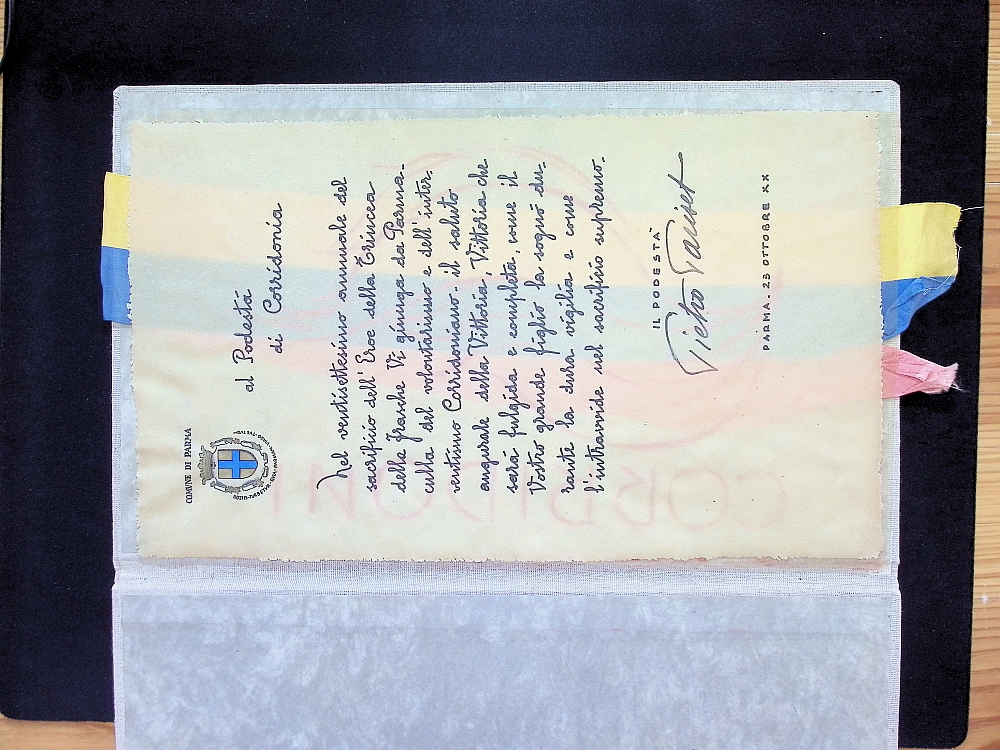 COMUNE DI PARMA
al Podestà
di Corridonia
Nel ventisettesimo annuale del
sacrificio dell'Eroe della Trincea
delle Frasche Vi giunga da Parma-
culla del volontarismo e dell'inter-
ventismo Corridoniano- il saluto
augurale della Vittoria, Vittoria che
sarà fulgida e completa, come il
Vostro grande figlio la sognò du-
rante la dura vigilia e come
l'intravvide nel sacrificio supremo.
IL PODESTÀ
PARMA - 23 OTTOBRE XX
CORRIDONI